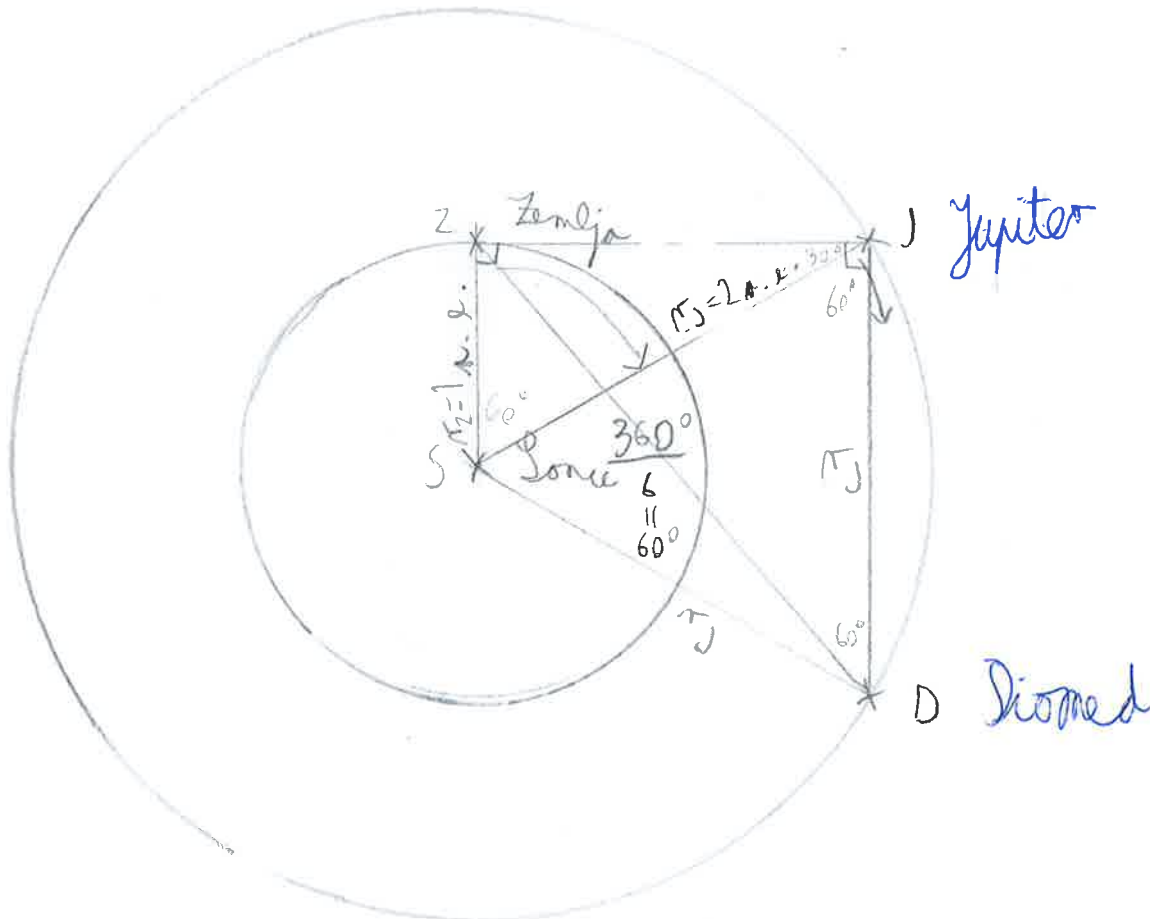 Z Zemlja
J Jupiter
30°
60°
r_J = 2 a. e.
r_Z = 1 a. e.
60°
S Sonce
360°
6
||
60°
r_J
r_J
60°
D Diomed